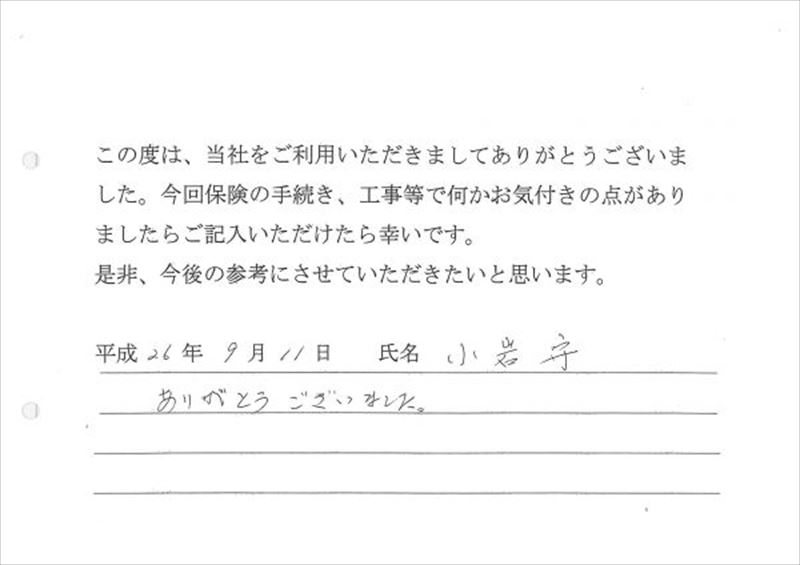 この度は、当社をご利用いただきましてありがとうございま
した。今回保険の手続き、工事等で何かお気付きの点があり
ましたらご記入いただけたら幸いです。
是非、今後の参考にさせていただきたいと思います。
平成 26 年 9 月 11 日 氏名 小岩 守
ありがとうございました。